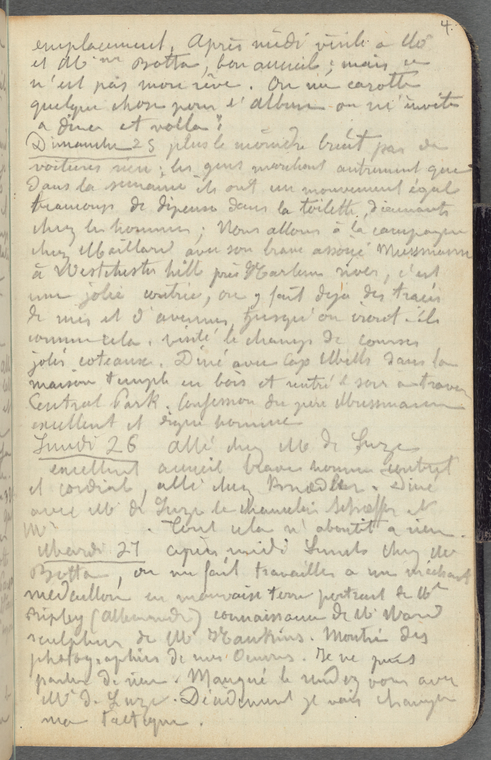 4.
emplacement. Après midi visite à Mr
et Mme Botta, bon accueil, mais ce
n'est pas mon rêve. On me carotte
quelque chose pour l'album on m'invite
a diner et voila!!
Dimanche 25 plus le moindre bruit pas de
voitures rien; les gens marchent autrement que
dans la semaine ils ont un mouvement égal
beaucoup de dépense dans la toilette, diamants
chez les hommes; Nous allons à la campagne
chez Maillard avec son brave associé Mussmann
à Westchester hill près Harlem river, c'est
une jolie contrée, on y fait déjà des tracés
de rues et d'avenues, jusqu'où iront-ils
comme cela. visité le champs de courses
jolis coteaux. Diné avec Cap Mills dans la
maison temple en bois et rentré le soir à travers
Central Park. Confession du père Mussmann
excellent et digne homme
Lundi 26 allé chez Mr de Luze
excellent accueil brave homme
et cordial, allé chez Diné
avec Mr de Luze le chancelier et
Mr . Tout cela n'aboutit a rien.
Mardi 27 après midi Lunch chez Mr
Botta, on me fait travailler a un méchant
médaillon en mauvaise terre portrait de Me
Ripley (Allemande) connaissance de Mr Ward
sculpteur de Mr Hawkins. Montré des
photographies de mes Oeuvres. Je ne puis
parler de rien. Manqué le rendez vous avec
Mr de Luze. Décidément je vais changer
ma tactique.